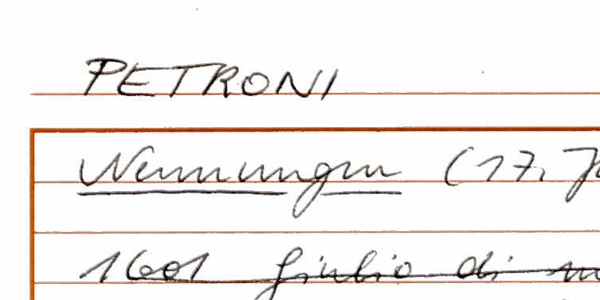 PETRONI
Nennungen (17. J
1601 Giulio di